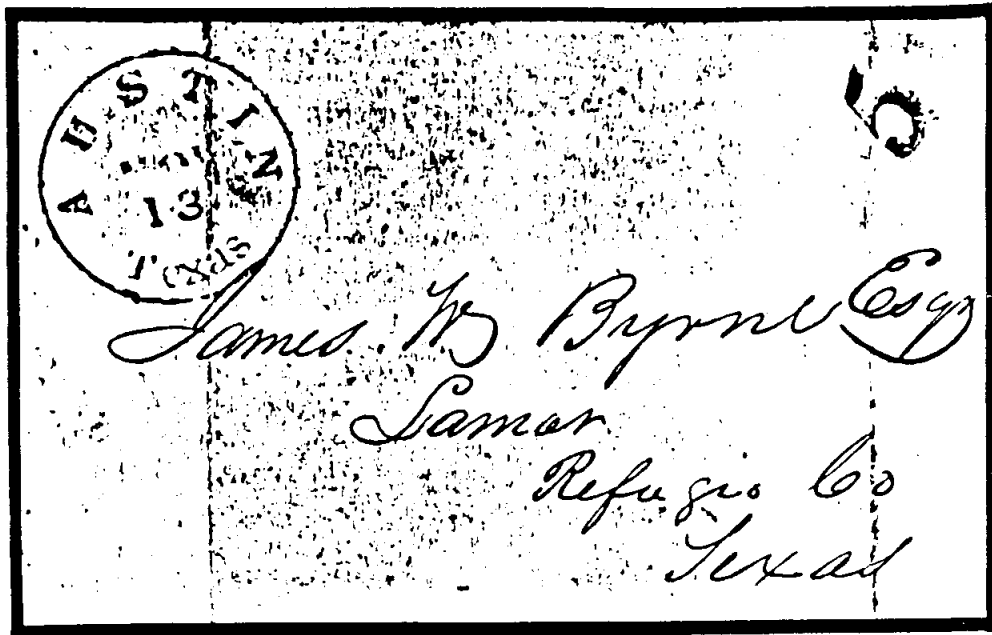 AUSTIN
13
Texas
5
James W Byrne Esqr
Lamar
Refugio Co
Texas